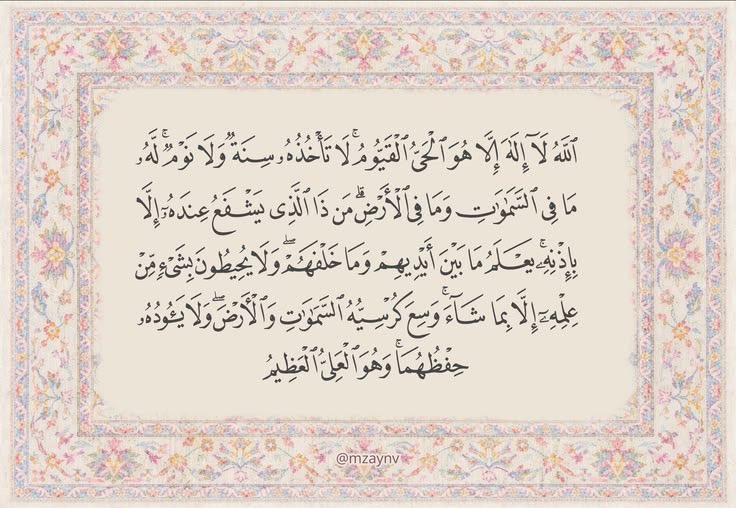 ٱللَّهُ لَآ إِلَٰهَ إِلَّا هُوَ ٱلْحَىُّ ٱلْقَيُّومُ ۚ لَا تَأْخُذُهُۥ سِنَةٌ وَلَا نَوْمٌ ۚ لَّهُۥ
مَا فِى ٱلسَّمَٰوَٰتِ وَمَا فِى ٱلْأَرْضِ ۗ مَن ذَا ٱلَّذِى يَشْفَعُ عِندَهُۥٓ إِلَّا
بِإِذْنِهِۦ ۚ يَعْلَمُ مَا بَيْنَ أَيْدِيهِمْ وَمَا خَلْفَهُمْ ۖ وَلَا يُحِيطُونَ بِشَىْءٍ مِّنْ
عِلْمِهِۦٓ إِلَّا بِمَا شَآءَ ۚ وَسِعَ كُرْسِيُّهُ ٱلسَّمَٰوَٰتِ وَٱلْأَرْضَ ۖ وَلَا يَـُٔودُهُۥ
حِفْظُهُمَا ۚ وَهُوَ ٱلْعَلِىُّ ٱلْعَظِيمُ
@mzaynv